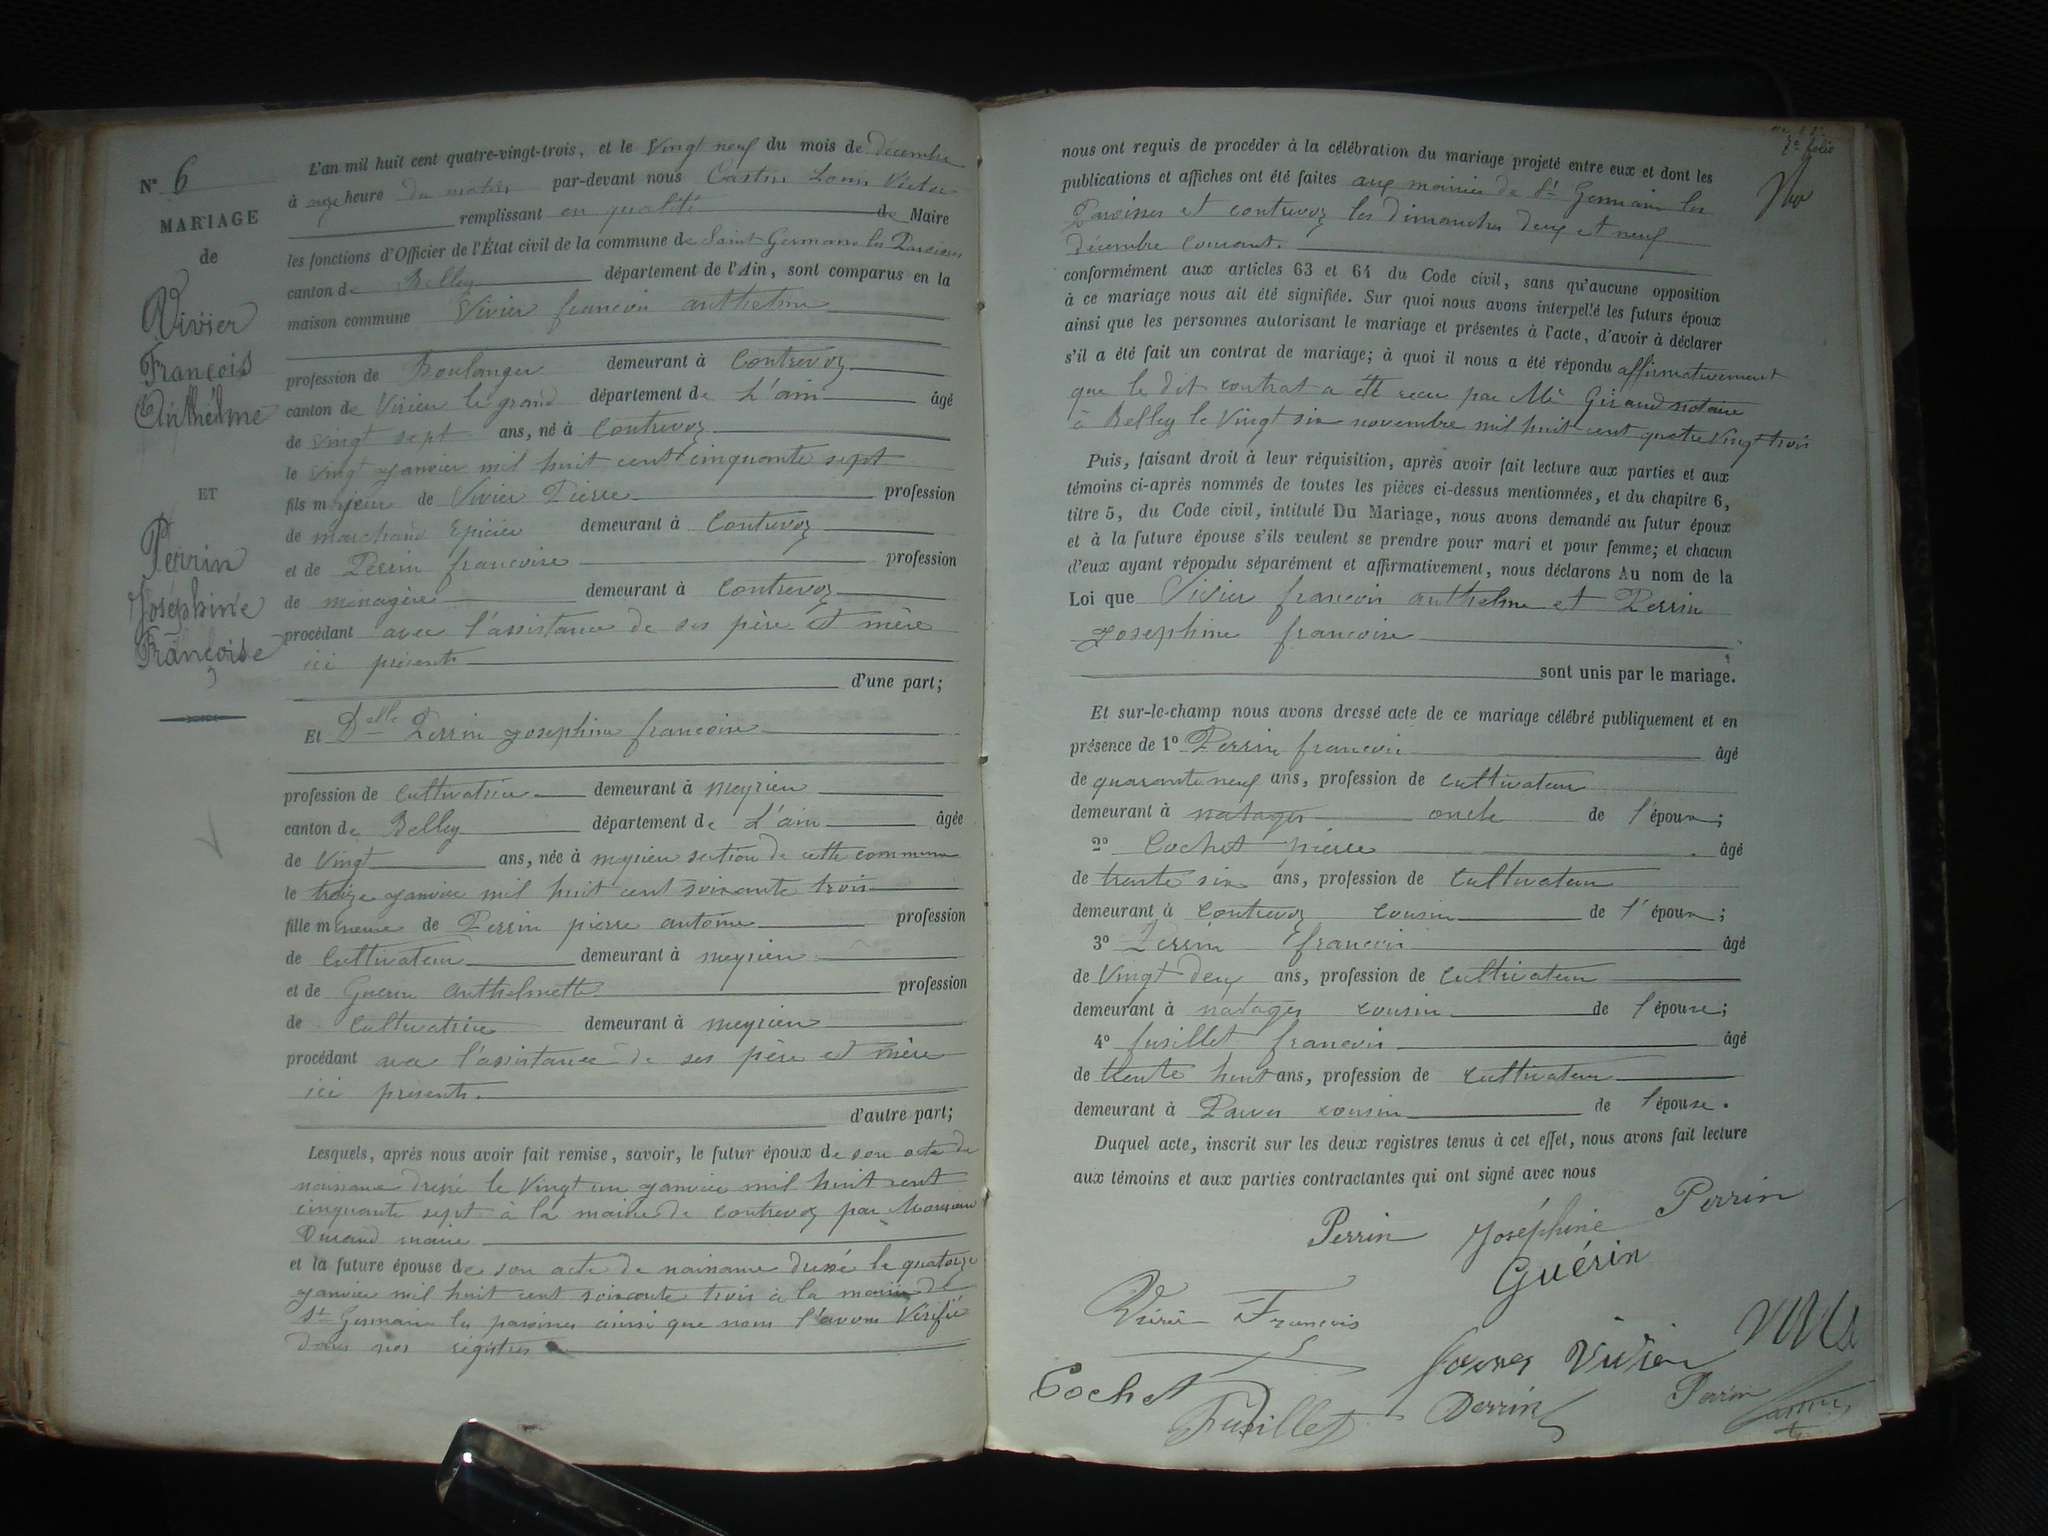 N° 6
MARIAGE
de
Vivier
François
Anthelme
ET
Perrin
Joséphine
Françoise
L'an mil huit cent quatre-vingt-trois, et le Vingt neuf du mois de décembre
à onze heure du matin par-devant nous Castin Louis Victor
remplissant en qualité de Maire
les fonctions d'Officier de l'État civil de la commune de Saint Germain les Paroisses
canton de Belley département de l'Ain, sont comparus en la
maison commune Vivier francois anthelme
profession de Boulanger demeurant à Contrevoz
canton de Virieu le grand département de L'ain âgé
de vingt sept ans, né à Contrevoz
le vingt janvier mil huit cent cinquante sept
fils majeur de Vivier Pierre profession
de marchand Epicier demeurant à Contrevoz
et de Perrin francoise profession
de menagère demeurant à Contrevoz
procédant avec l'assistance de ses père et mère
ici présents
d'une part;
Et Delle Perrin Josephine francoise
profession de cultivatrice demeurant à meyrieu
canton de Belley département de L'ain âgée
de Vingt ans, née à meyrieu section de cette commune
le treize janvier mil huit cent soixante trois
fille mineure de Perrin pierre antoine profession
de Cultivateur demeurant à meyrieu
et de Guerin anthelmette profession
de cultivatrice demeurant à meyrieu
procédant avec l'assistance de ses père et mère
ici présents.
d'autre part;
Lesquels, après nous avoir fait remise, savoir, le futur époux de son acte de
naissance dressé le Vingt un janvier mil huit cent
cinquante sept à la mairie de Contrevoz par Monsieur
Durand maire
et la future épouse de son acte de naissance dressé le quatorze
janvier mil huit cent soixante trois à la mairie de
St Germain les paroisses ainsi que nous l'avons Vérifié
dans nos régistres
nous ont requis de procéder à la célébration du mariage projeté entre eux et dont les
publications et affiches ont été faites aux mairies de St Germain les
Paroisses et contrevoz les dimanches deux et neuf
décembre courant.
conformément aux articles 63 et 64 du Code civil, sans qu'aucune opposition
à ce mariage nous ait été signifiée. Sur quoi nous avons interpellé les futurs époux
ainsi que les personnes autorisant le mariage et présentes à l'acte, d'avoir à déclarer
s'il a été fait un contrat de mariage; à quoi il nous a été répondu affirmativement
que le dit contrat a été recu par Me Giraud notaire
à Belley le Vingt six novembre mil huit cent quatre vingt trois
Puis, faisant droit à leur réquisition, après avoir fait lecture aux parties et aux
témoins ci-après nommés de toutes les pièces ci-dessus mentionnées, et du chapitre 6,
titre 5, du Code civil, intitulé Du Mariage, nous avons demandé au futur époux
et à la future épouse s'ils veulent se prendre pour mari et pour femme; et chacun
d'eux ayant répondu séparément et affirmativement, nous déclarons Au nom de la
Loi que Vivier francois anthelme et Perrin
Josephine francoise
sont unis par le mariage.
Et sur-le-champ nous avons dressé acte de ce mariage célébré publiquement et en
présence de 1° Perrin francois âgé
de quarante neuf ans, profession de cultivateur
demeurant à natages oncle de l'époux;
2° Cochet pierre âgé
de trente six ans, profession de cultivateur
demeurant à Contrevoz cousin de l'époux;
3° Perrin francois âgé
de Vingt deux ans, profession de cultivateur
demeurant à natages cousin de l'épouse;
4° fusillet francois âgé
de trente huit ans, profession de cultivateur
demeurant à cousin de l'épouse.
Duquel acte, inscrit sur les deux registres tenus à cet effet, nous avons fait lecture
aux témoins et aux parties contractantes qui ont signé avec nous
Perrin Joséphine Perrin
Guérin
François
Vivier
Cochet Fusillet Perrin Perrin